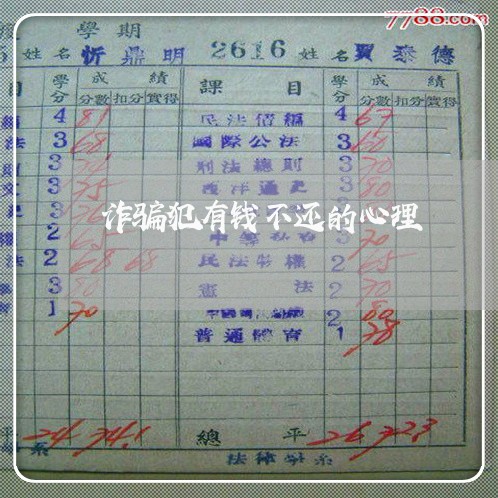 7788.com
學期
姓名 忻鼎明 2616 姓名 賈泰德
目 學分 成績 課目 學分 成績
分數 扣分 實得 分數 扣分 實得
4 81 民法債編 4 67
法 3 68 國際公法 3 60
3 刑法總則 3 70
3 75 西洋通史 3 80
诈骗犯有钱不还的心理
2 3 70
法 2 68 68 民法物權 2 65
3 80 憲法 2 70
1 70 2 80
普通體育 1 78
平 24 74.1 總平 26 72.3
系 法律學系